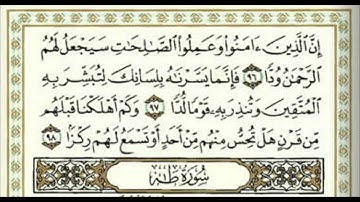 إِنَّ ٱلَّذِينَ ءَامَنُوا۟ وَعَمِلُوا۟ ٱلصَّٰلِحَٰتِ سَيَجْعَلُ لَهُمُ
ٱلرَّحْمَٰنُ وُدًّا ٩٦ فَإِنَّمَا يَسَّرْنَٰهُ بِلِسَانِكَ لِتُبَشِّرَ بِهِ
ٱلْمُتَّقِينَ وَتُنذِرَ بِهِۦ قَوْمًا لُّدًّا ٩٧ وَكَمْ أَهْلَكْنَا قَبْلَهُم
مِّن قَرْنٍ هَلْ تُحِسُّ مِنْهُم مِّنْ أَحَدٍ أَوْ تَسْمَعُ لَهُمْ رِكْزًۢا ٩٨
سُورَةُ طه